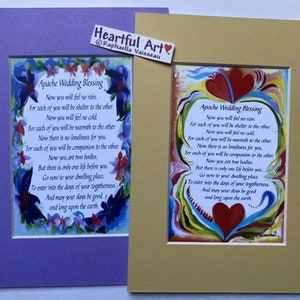 Heartful Art
©Raphaella Vaisseau
Apache Wedding Blessing
Now you will feel no rain.
For each of you will be shelter to the other.
Now you will feel no cold.
For each of you will be warmth to the other.
Now there is no loneliness for you.
For each of you will be companion to the other.
Now you are two bodies.
But there is only one life before you.
Go now to your dwelling place.
To enter into the days of your togetherness.
And may your days be good
and long upon the earth.
Apache Wedding Blessing
Now you will feel no rain.
For each of you will be shelter to the other.
Now you will feel no cold.
For each of you will be warmth to the other.
Now there is no loneliness for you.
For each of you will be companion to the other.
Now you are two bodies.
But there is only one life before you.
Go now to your dwelling place.
To enter into the days of your togetherness.
And may your days be good
and long upon the earth.